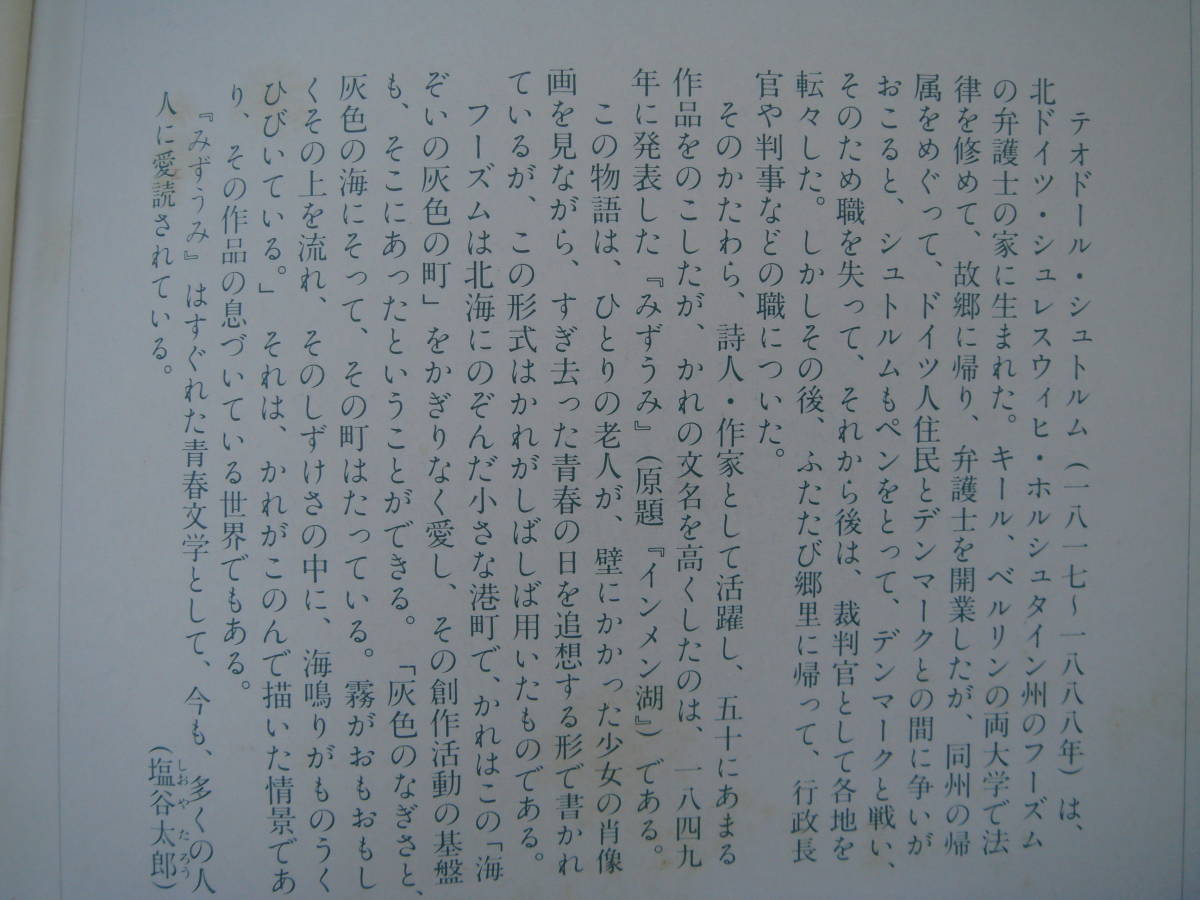 テオドール・シュトルム（一八一七〜一八八八年）は、
北ドイツ・シュレスウィヒ・ホルシュタイン州のフーズム
の弁護士の家に生まれた。キール、ベルリンの両大学で法
律を修めて、故郷に帰り、弁護士を開業したが、同州の帰
属をめぐって、ドイツ人住民とデンマークとの間に争いが
おこると、シュトルムもペンをとって、デンマークと戦い、
そのため職を失って、それから後は、裁判官として各地を
転々した。しかしその後、ふたたび郷里に帰って、行政長
官や判事などの職についた。
そのかたわら、詩人・作家として活躍し、五十にあまる
作品をのこしたが、かれの文名を高くしたのは、一八四九
年に発表した『みずうみ』（原題『インメン湖』）である。
この物語は、ひとりの老人が、壁にかかった少女の肖像
画を見ながら、すぎ去った青春の日を追想する形で書かれ
ているが、この形式はかれがしばしば用いたものである。
フーズムは北海にのぞんだ小さな港町で、かれはこの「海
ぞいの灰色の町」をかぎりなく愛し、その創作活動の基盤
も、そこにあったということができる。「灰色のなぎさと、
灰色の海にそって、その町はたっている。霧がおもおもし
くその上を流れ、そのしずけさの中に、海鳴りがものうく
ひびいている。」それは、かれがこのんで描いた情景であ
り、その作品の息づいている世界でもある。
『みずうみ』はすぐれた青春文学として、今も、多くの人
人に愛読されている。
（塩谷太郎）
しおやたろう